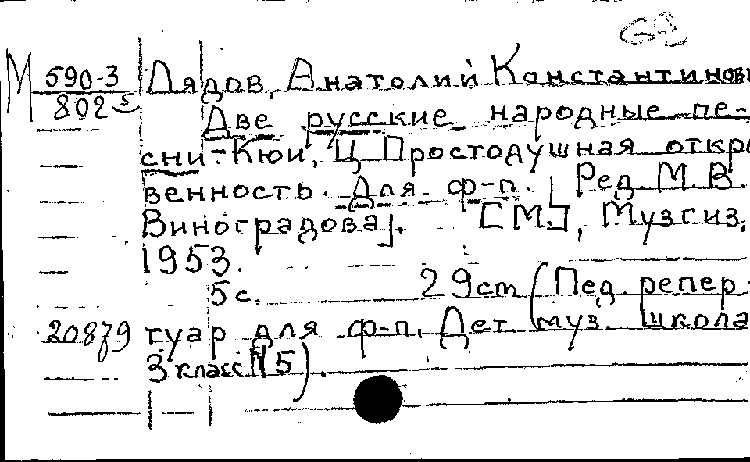 М 590-3 Лядов, Анатолий Константинови
802 Две русские народные пе-
сни-Кюи, Ц Простодушная откро
венность. Для ф-п. Ред. М.В.
Виноградова]. [М.], Музгиз,
1953.
5 с. 29cm (Пед. репер-
20879 туар для ф-п. Дет. муз. школа
3 класс